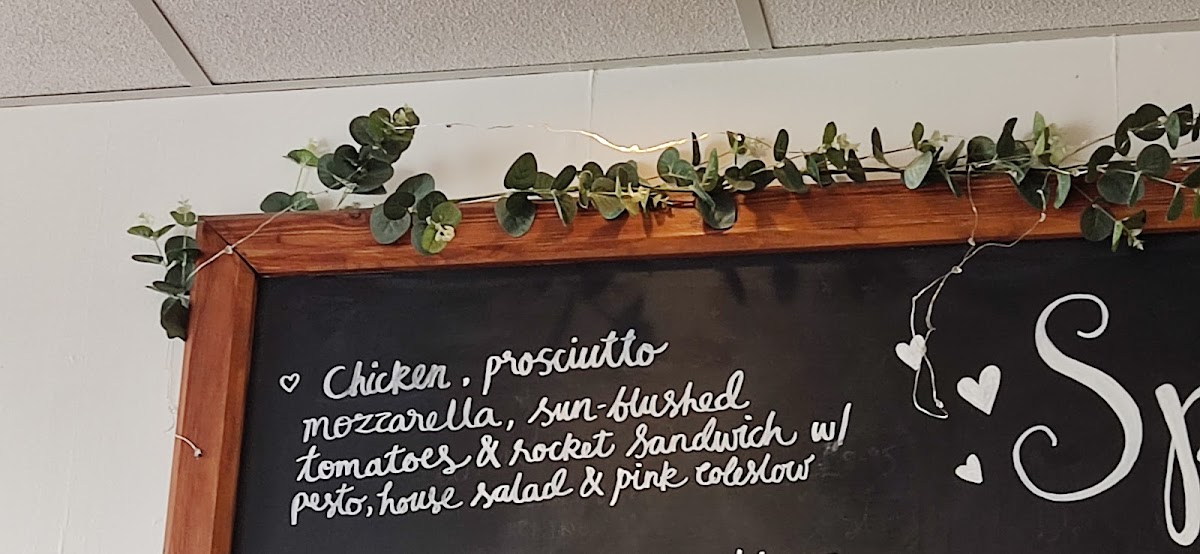 ♡ Chicken, prosciutto
mozzarella, sun-blushed
tomatoes & rocket sandwich w/
pesto, house salad & pink coleslow
Sp